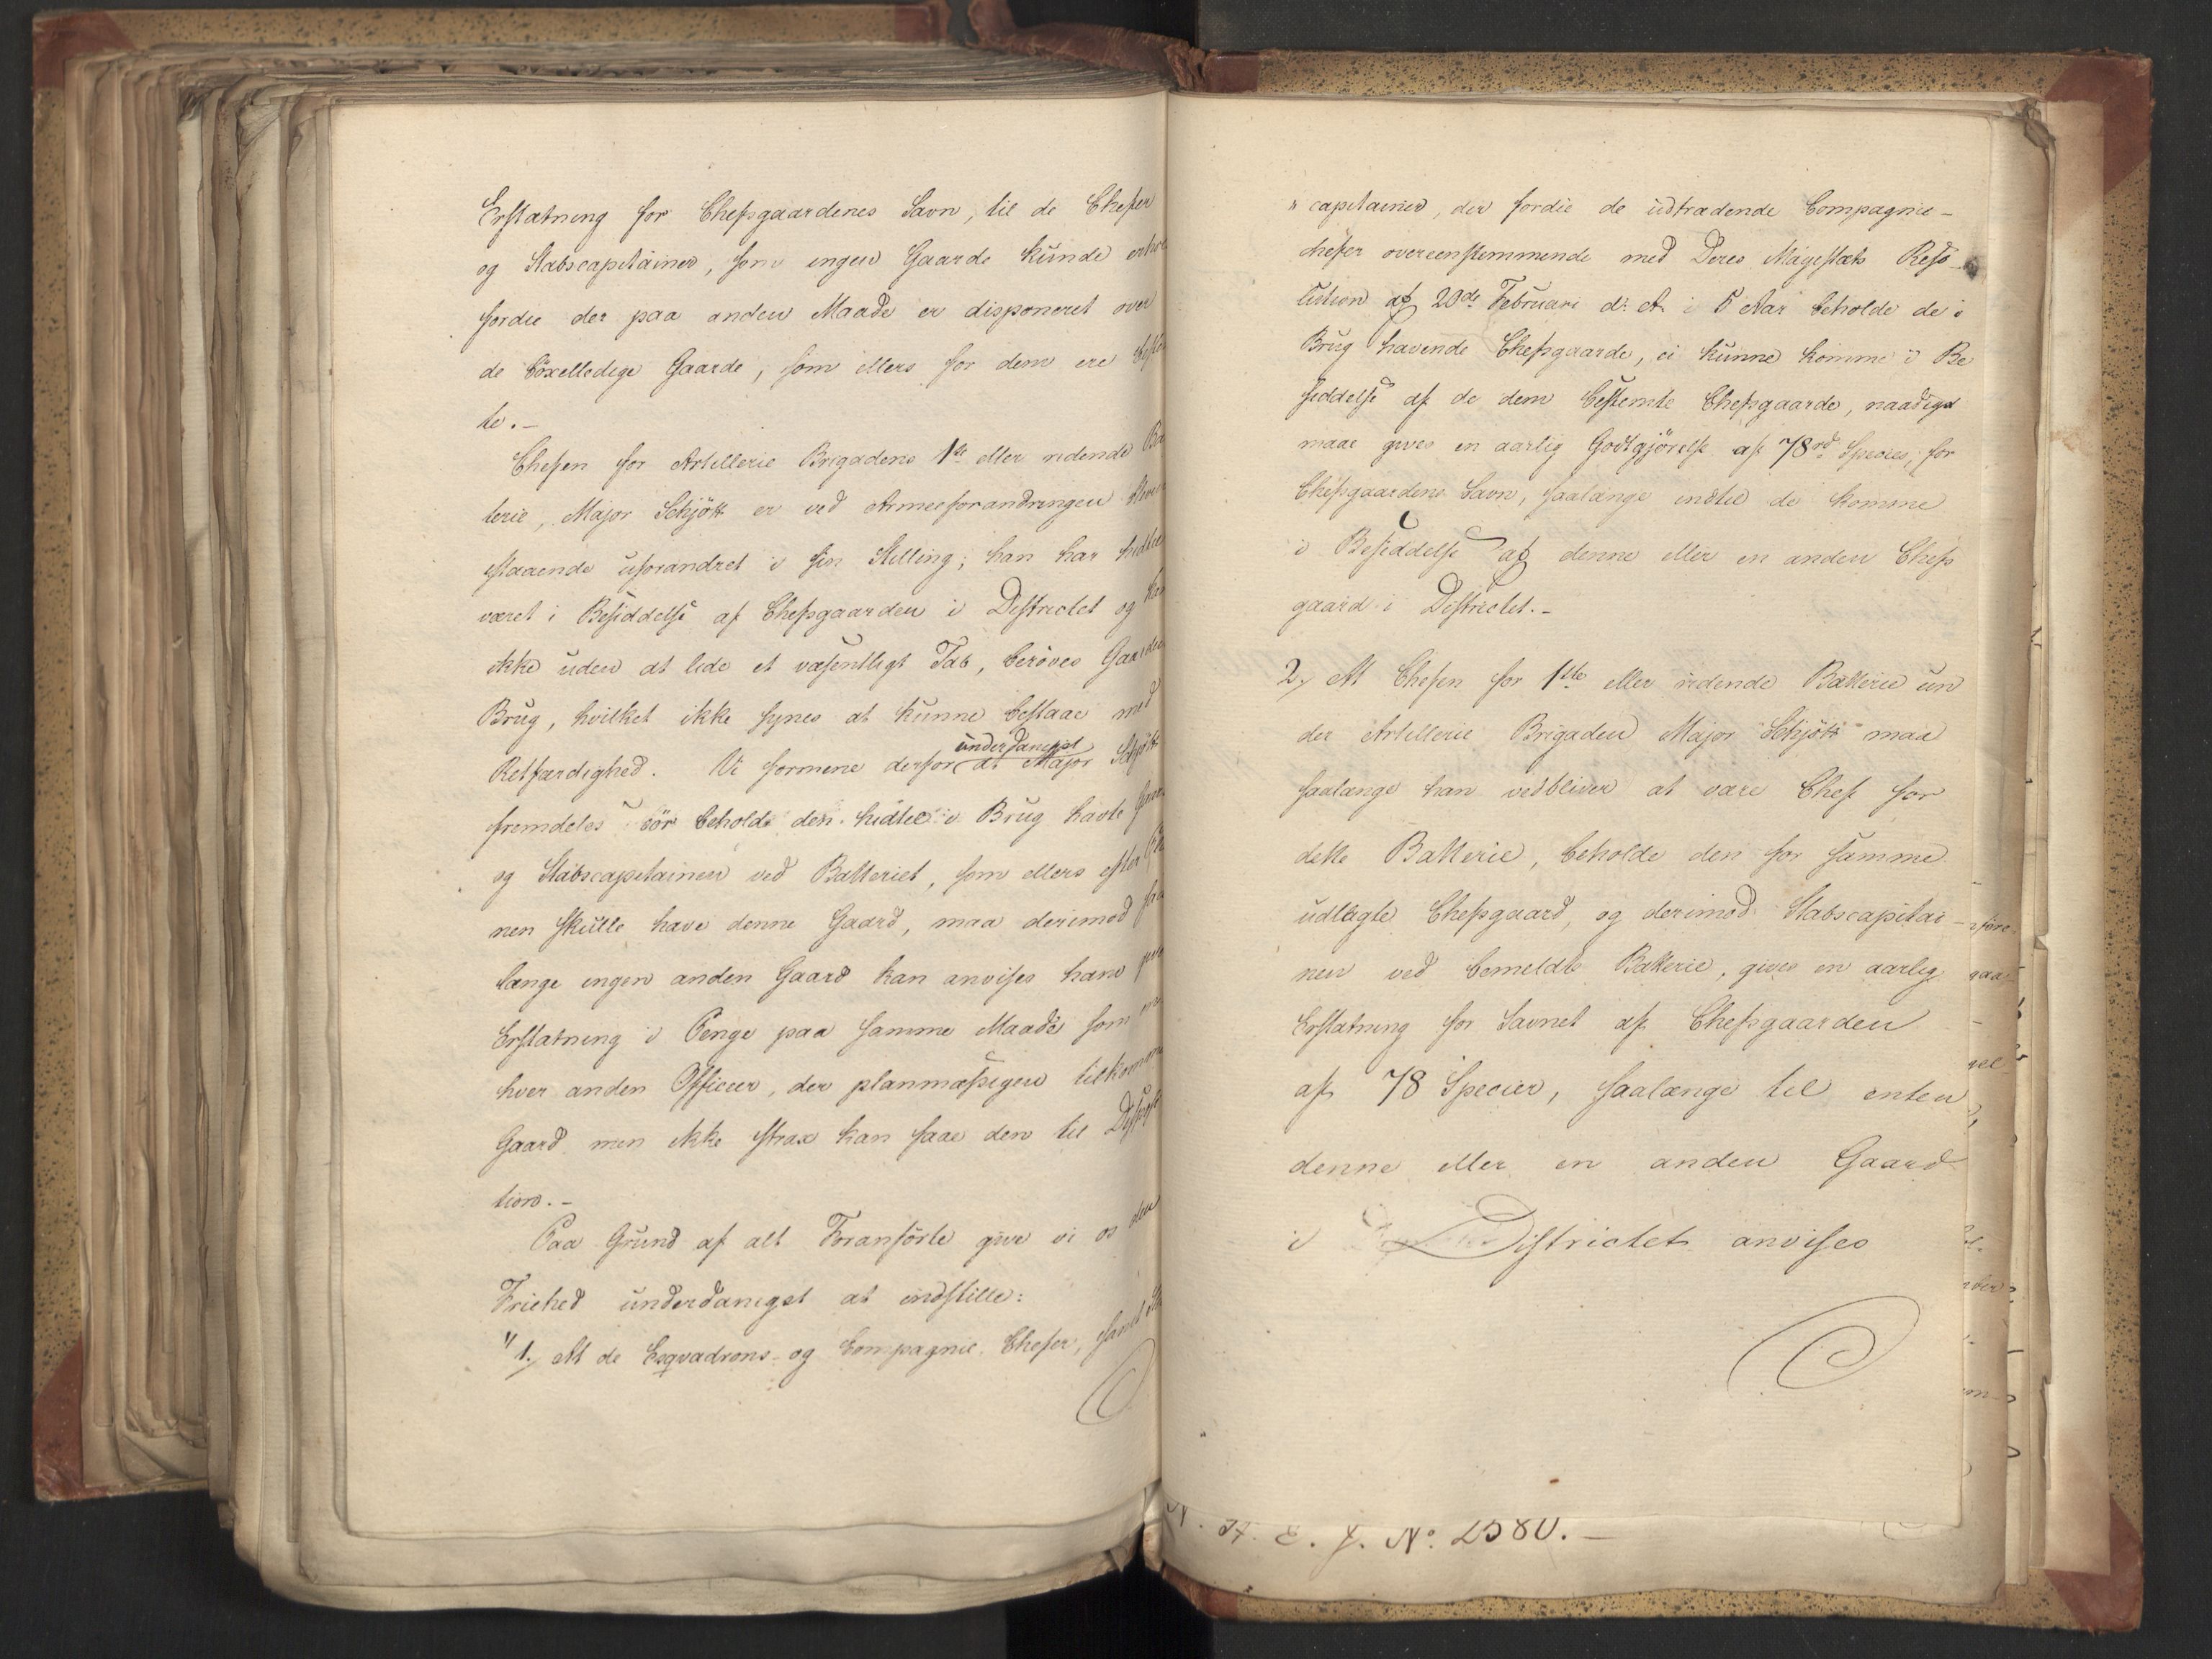 Erstatning for Chefsgaardenes Savn, til de Chefer
og Stabscapitainer, som ingen Gaarde kunde erhol
fordie der paa anden Maade er disponeret over
de böxelledige Gaarde, som ellers for dem ere
te.-
Chefen for Artillerie Brigadens 1ste eller ridende Bat
terie, Major Schjött er ved Armeeforandringen
staaende uforandret i sin Stilling; han har hidtil
været i Besiddelse af Chefsgaarden i Districtet og kan
ikke uden at lide et væsentligt Tab, beröves Gaarden
Brug, hvilket ikke synes at kunne bestaae med
Retfærdighed. Vi formene derfor underdanigst at Major Schjött
fremdeles bör beholde den hidtil i Brug havte
og Stabscapitainen ved Batteriet, som ellers efter
nen skulle have denne Gaard, maa derimod saa
længe ingen anden Gaard kan anvises ham
Erstatning i Penge paa samme Maade som
hver anden Officeer, der planmæssigen tilkommer
Gaard men ikke strax kan faae den til Disposi
tion.-
Paa Grund af alt Foranförte give vi os den
Friehed underdanigst at indstille:
"1., At de Esqvadrons- og Compagnie Chefer, samt
" capitainer, der fordie de udtrædende Compagnie-
chefer overeenstemmende med Deres Majestæts Reso-
lution af 20de Februari d: A. i 5 Aar beholde de i
Brug havende Chefsgaarde, ei kunne komme i Be
siddelse af de dem bestemte Chefsgaarde, naadigst
maae gives en aarlig Godtgjörelse af 78rd Species, for
Chefsgaardens Savn, saalænge indtil de komme
i Besiddelse af denne eller en anden Chefs
gaard i Districtet.-
2., At Chefen for 1ste eller ridende Batterie un
der Artillerie Brigaden Major Schjött maa
saalænge han vedbliver at være Chef for
dette Batterie, beholde den for samme
udlagte Chefsgaard, og derimod Stabscapitai-
nen ved bemeldte Batterie, gives en aarlig
Erstatning for Savnet af Chefsgaarden
af 78 Specier, saalænge til enten
denne eller en anden Gaard
i Districtet anvises
N. H. E. J. No. 2580.-